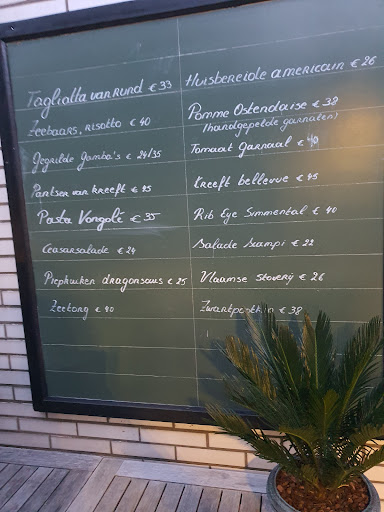 Tagliatta van rund € 33
Zeebaars, risotto € 40
Gegrilde Gamba's € 24/35
Pantser van kreeft € 45
Pasta Vongolé € 35
Ceasarsalade € 24
Piepkuiken dragonsaus € 25
Zeetong € 40
Huisbereide americain € 26
Pomme Ostendaise € 38
(handgepelde garnalen)
Tomaat Garnaal € 40
Kreeft bellevue € 45
Rib Eye Simmental € 40
Salade Scampi € 22
Vlaamse stoverij € 26
€ 38